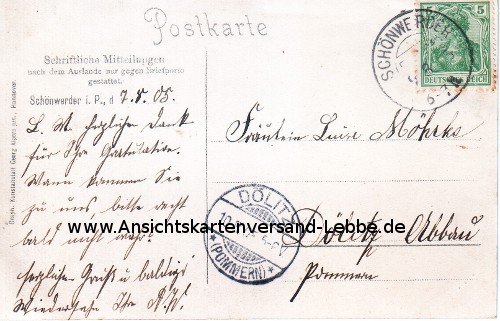 Postkarte
Schriftliche Mitteilungen
nach dem Auslande nur gegen Briefporto
gestattet.
Schönwerder i. P., d 7.5.05.
L. M. herzlichen Dank
für Ihre Gratulation.
Wann kommen Sie
zu uns, bitte recht
bald
herzlichen Gruß u. baldigs
Wiedersehn Ihr A. W.
Fräulein Luise Möhrks
Dölitz Abbau
Pommern
SCHÖNWERDER
5
DEUTSCHES REICH
DÖLITZ
*(POMMERN)*
www.Ansichtskartenversand-Lebbe.de